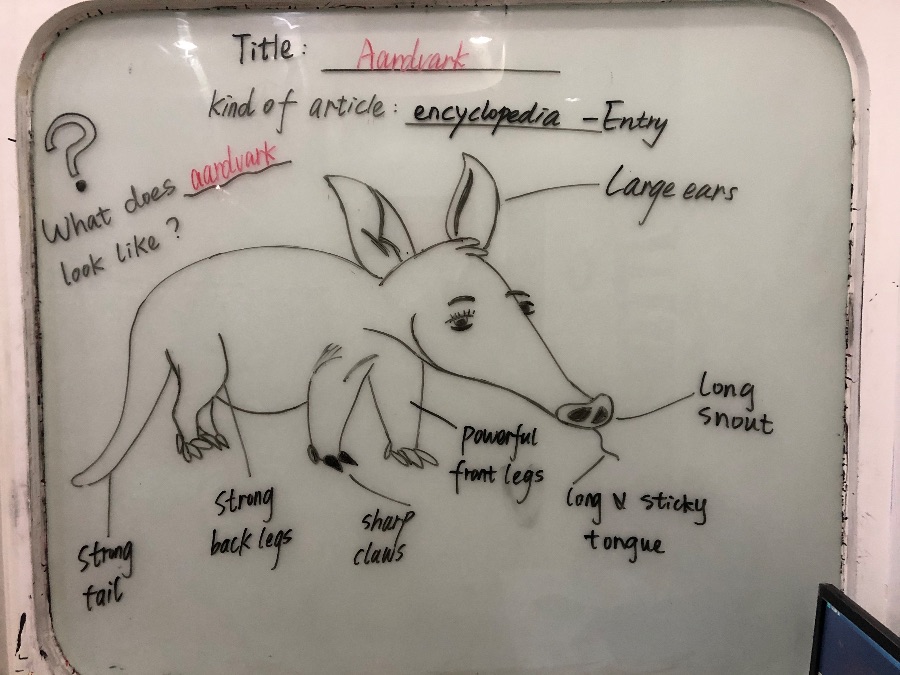 Title: Aardvark
kind of article: encyclopedia - Entry
?
What does aardvark
look like?
Large ears
Long
snout
powerful
front legs
long & sticky
tongue
Strong
back legs
sharp
claws
Strong
tail